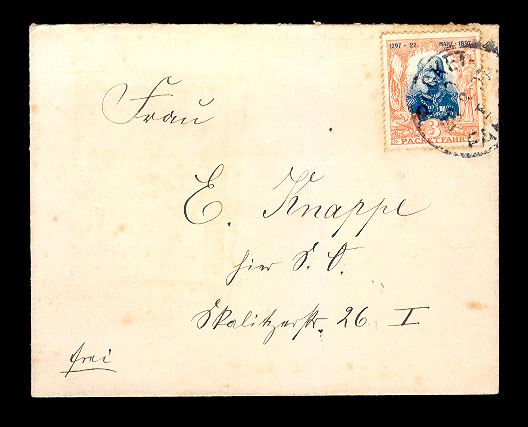 1797 · 22 MÄRZ · 1897
3
PACKETFAHRT
Frau
E. Knappe
hier S. O.
Skalitzerstr. 26 I
frei